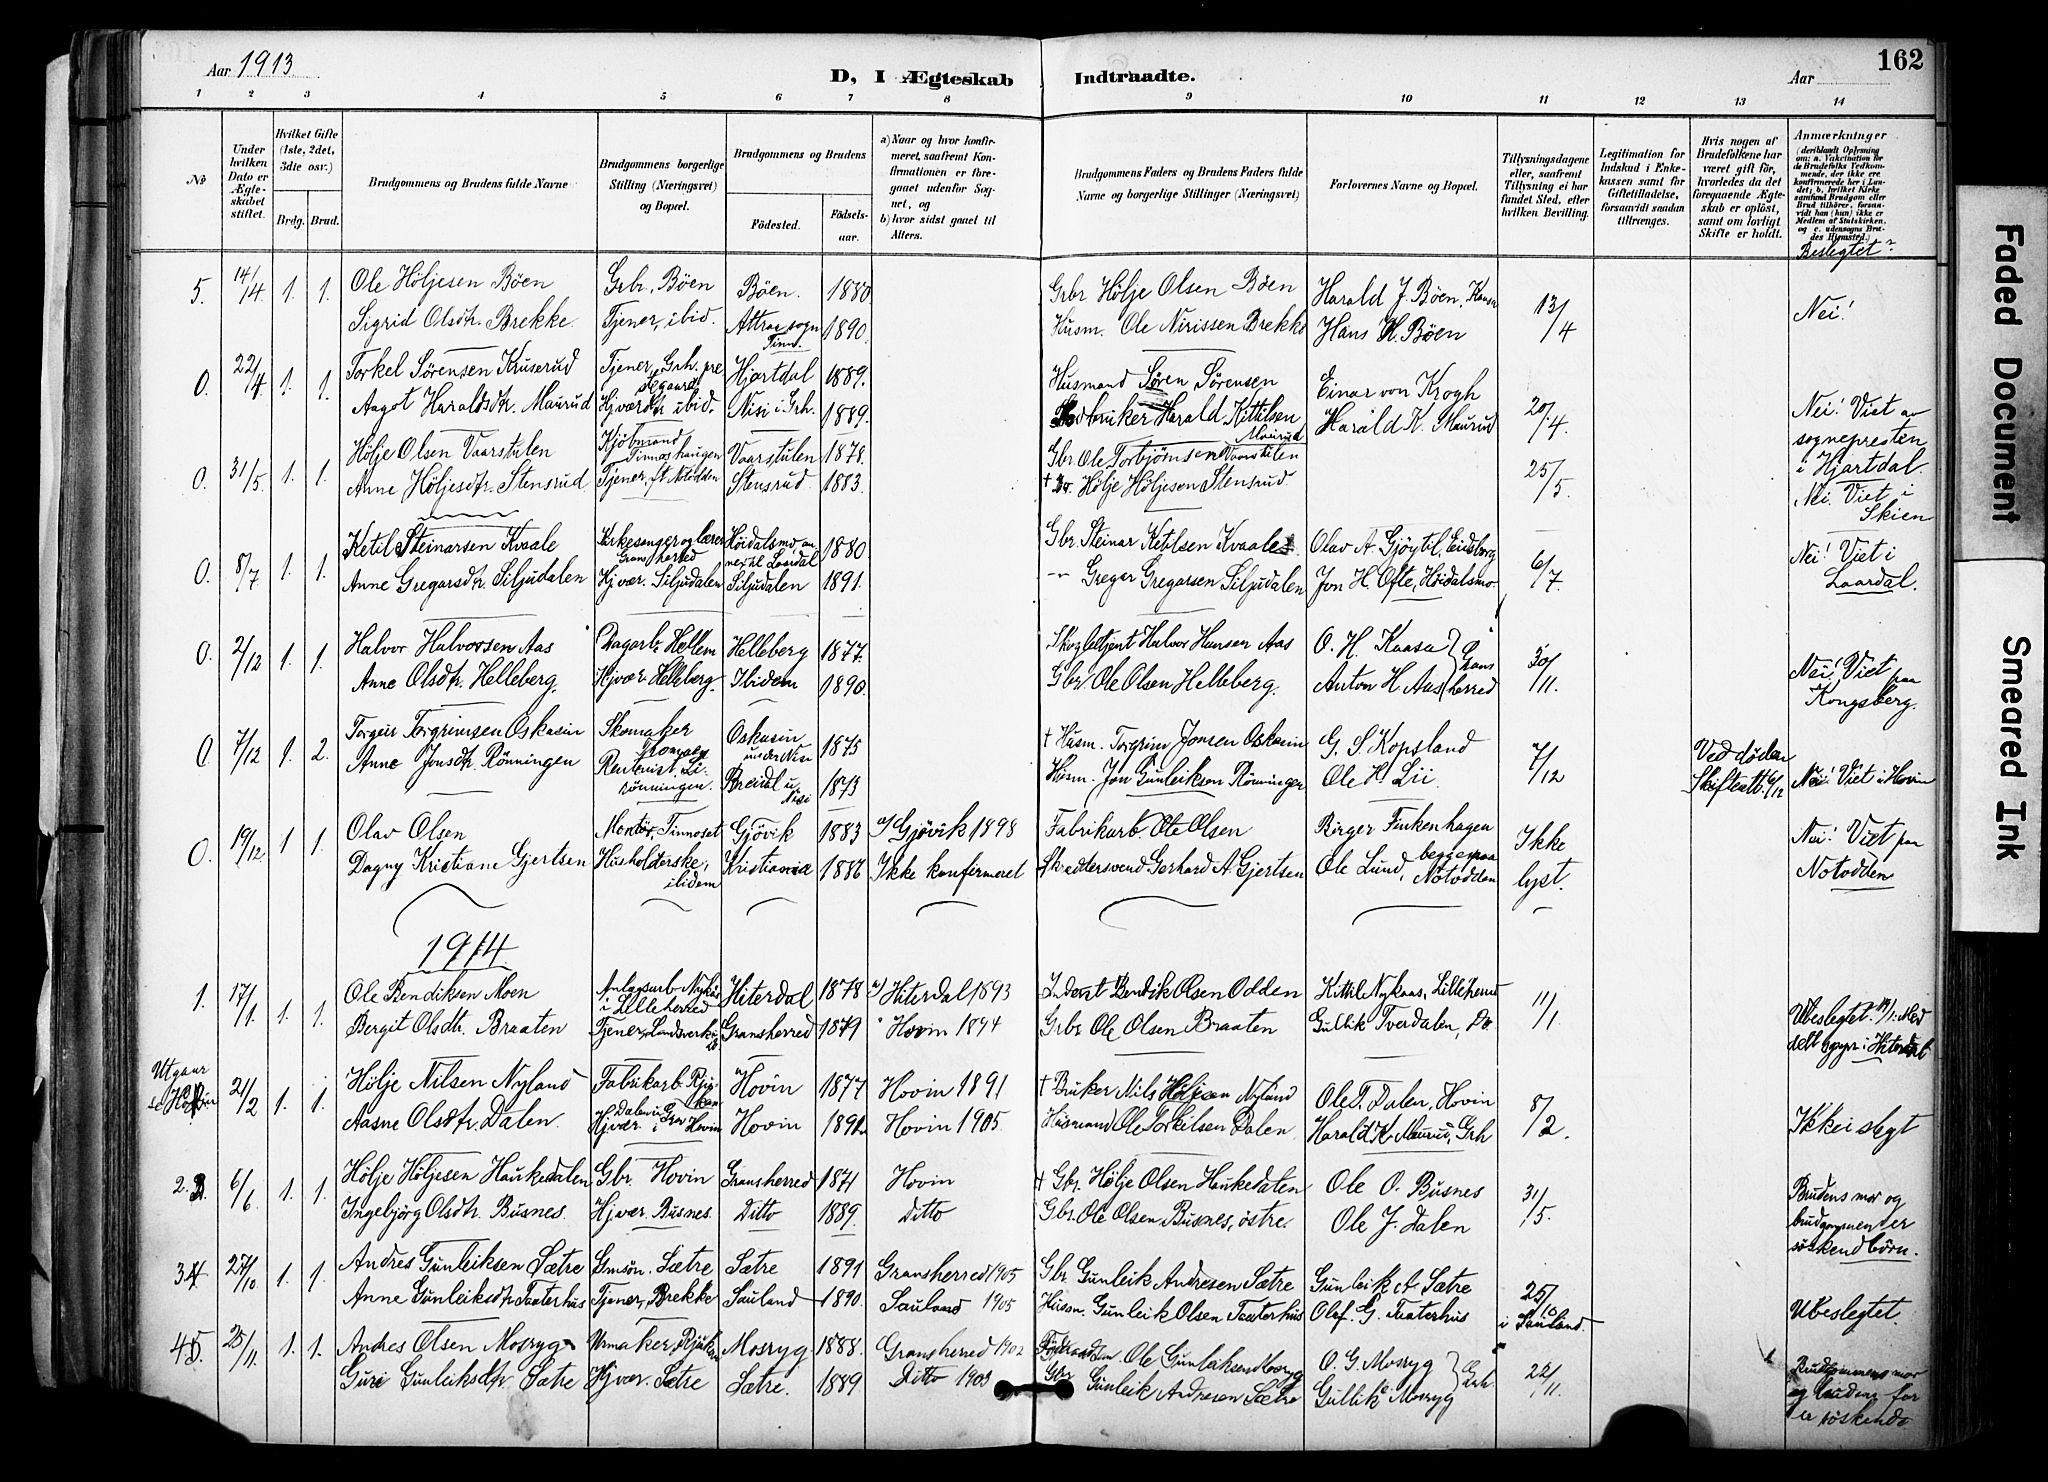 162
Aar 1913.
D, I Ægteskab Indtraadte.
Aar
1 2 3 4 5 6 7 8 9 10 11 12 13 14
No
Under hvilken Dato er Ægteskabet stiftet.
Hvilket Gifte (1ste, 2det, 3die osv.)
Brdg. Brud.
Brudgommens og Brudens fulde Navne
Brudgommens borgerlige Stilling (Næringsvei) og Bopæl.
Brudgommens og Brudens
Fødested.
Fødselsaar.
a) Naar og hvor konfirmeret, saafremt Konfirmationen er foregaaet udenfor Sognet, og
b) hvor sidst gaaet til Alters.
Brudgommens Faders og Brudens Faders fulde Navne og borgerlige Stillinger (Næringsvei)
Forlovernes Navne og Bopæl.
Tillysningsdagene eller, saafremt Tillysning ei har fundet Sted, efter hvilken Bevilling.
Legitimation for Indskud i Enkekassen samt for Giftetilladelse, forsaavidt saadan tiltrænges.
Hvis nogen af Brudefolkene har været gift, hvorledes da det foregaaende Ægteskab er opløst, samt om lovligt Skifte er holdt.
Anmærkninger
(deriblandt Oplysning om: a. Vakcination for de Brudefolks Vedkommende, der ikke ere konfirmerede her i Landet; b. hvilket Kirkesamfund Brudgom eller Brud tilhører, forsaavidt han (hun) ikke er Medlem af Statskirken, og c. udensogns Brudes Hjemsted.)
Beslegtet?
5. 14/4 1. 1. Ole Höljesen Böen Grbr. Böen Böen. 1880 Grbr Hölje Olsen Böen Harald J. Böen, 13/4 Nei!
Sigrid Olsdtr. Brekke. Tjener, ibid. Attraa sogn Tinn. 1890. Husm. Ole Nirissen Brekke Hans H. Böen
O. 22/4 1. 1. Torkel Sörensen Kruserud Tjener, Grh. prestegaard Hjartdal 1889. Husmand Sören Sörensen Einar von Krogh 20/4. Nei! Viet av sognepresten i Hjartdal.
Aagot Haraldsdtr. Maurud Hjvær. ibid. Nisi i Grh. 1889. bruker Harald Kittilsen Maurud Harald K. Maurud
O. 31/5. 1. 1. Hölje Olsen Vaarstulen Kjöbmand Tinnoshaugen Vaarstulen 1878. Gbr. Ole Torbjörnsen Vaarstulen 25/5. Nei! Viet i Skien
Anne Höljesdtr. Stensrud Tjener, Notodden Stensrud 1883. † Hölje Höljesen Stensrud
O. 8/7 1. 1. Ketil Steinarsen Kvaale Kirkesanger og lærer Gransherred Höidalsmo, annex til Laardal 1880. Gbr. Steinar Ketilsen Kvaale Olav A. Gjöytil, 6/7. Nei! Viet i Laardal.
Anne Gregarsdtr. Siljudalen Hjvær. Siljudalen Siljudalen 1891. -"- Gregar Gregarsen Siljudalen Jon H. Ofte, Höidalsmo.
O. 2/12 1. 1. Halvor Halvorsen Aas Dagarb. Hellem Helleberg 1877. Halvor Hansen Aas O. H. Kaasa 30/11. Nei! Viet paa Kongsberg.
Anne Olsdtr. Helleberg. Hjvær. Helleberg. Ibidem 1890. Gbr. Ole Olsen Helleberg. Anton H. Aas Gransherred
O 7/12 1. 2. Torgeir Torgrimsen Oskasin Skomaker Oskasin under Nisi 1875 † Husm. Torgrim Jonsen Oskasin G. S. Kopsland 7/12 Ved döden Skifteatt. 6/12 Nei! Viet i Hovin
Anne Jonsdtr. Rönningen Lirönningen. Nisi 1873 Husm. Jon Gunleiksen Rönningen Ole H. Lii
O. 19/12. 1 1. Olav Olsen Montör, Tinnoset Gjövik 1883 a) Gjövik 1898 Fabrikarb. Ole Olsen Birger Finkenhagen Ikke lyst. Nei! Viet paa Notodden
Dagny Kristiane Gjertsen Husholderske, ibidem Kristiania 1886 Ikke konfirmeret Skræddersvend Gerhard A. Gjertsen Ole Lund, begge paa Notodden
1914.
1. 17/1. 1. 1. Ole Bendiksen Moen Anlægsarb. Nykaas i Lilleherred Hiterdal 1878 a) Hiterdal 1893 Inderst Bendik Olsen Odden Kittil Nykaas, Lilleherred 11/1. Ubeslegtet.
Bergit Olsdtr. Braaten Tjener, Gransherred 1879 " Hovin 1894 Grbr. Ole Olsen Braaten Gullik Tverdalen, Do.
Utgaar se Hovin 21/2 1. 1. Hölje Nilsen Nyland Fabrikarb. Rjukan Hovin 1877 Hovin 1891 † Bruker Nils Höljesen Nyland Ole T. Dalen, Hovin 8/2. Ikke i slegt
Aasne Olsdtr. Dalen. Hjvær. Dalen i Hovin Hovin 1891 Hovin 1905. Husmand Ole Torkilsen Dalen. Harald K. Maurud, Grh
2. 6/6. 1. 1. Hölje Höljesen Haukedalen Gbr. Hovin Gransherred 1871 Hovin † Gbr. Hölje Olsen Haukedalen Ole O. Busnes 31/5. Brudens mor og brudgommen er söskendbörn.
Ingebjörg Olsdtr. Busnes. Hjvær. Busnes. Ditto 1889. Ditto Gbr. Ole Olsen Busnes, östre. Ole J. Dalen
3 27/10. 1. 1. Andres Gunleiksen Sætre Gmsön. Sætre Sætre 1891 Gransherred 1905 Gbr. Gunleik Andresen Sætre Gunleik A Sætre 25/10 i Sauland. Ubeslegtet.
Anne Gunleiksdtr Taaterhus Tjener, Brekke Sauland 1890. Sauland 1905 Husm. Gunleik Olsen Taaterhus Olaf. G. Taaterhus
4 25/11. 1. 1. Andres Olsen Mosryg Urmaker, Rjukan Mosryg 1888. Gransherred 1902 Ole Gunleiksen Mosryg O. G. Mosryg Grh. 22/11. Brudgommens mor og brudens far er söskende
Guri Gunleiksdtr Sætre Hjvær. Sætre Sætre. 1889 Ditto 1903 Gbr Gunleik Andresen Sætre Gullik Mosryg
Faded Document
Smeared Ink